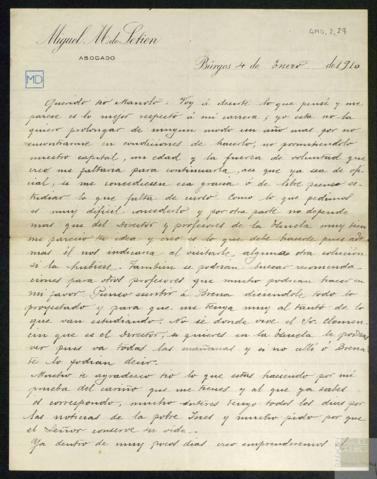 GMG, 2, 29
Miguel M. de Setién
ABOGADO
Búrgos 4 de Enero de 1910
MD
Querido tio Manolo: Voy á decirte lo que pensé y me
parece es lo mejor respecto á mi carrera; yo esta no la
quiero prolongar de ningun modo un año mas por no
encontrarme en condiciones de hacerlo, no permitiendolo
nuestro capital, mi edad y la fuerza de voluntad que
creo me faltaria para continuarla, asi que ya sea de ofi-
cial, si me concediesen esa gracia ó de libre pienso es-
tudiar lo que falta de curso. Como lo que pedimos
es muy dificil concederlo y por otra parte no depende
mas que del Director y profesores de la Escuela muy bien
me pareció tu idea y creo es lo que debe hacerse pues ade-
mas él nos indicaria al visitarle, alguna otra solución
si la hubiese. Tambien se podrian buscar recomenda-
ciones para otros profesores que mucho podrian hacer en
mi favor. Pienso escribir á Brena diciendole todo lo
proyectado y para que me tenga muy al tanto de lo
que van estudiando. No sé donde vive el Sr.
que es el Director, si quieres en la Escuela le podrias
ver pues va todas las mañanas y si no allí ó Brena
te lo podrian decir.
Mucho te agradezco tio lo que estas haciendo por mi
prueba del cariño que me tienes y al que ya sabes
os correspondo, mucho interes tengo todos los dias por
las noticias de la pobre Ines y mucho pido por que
el Señor conserve su vida.
Ya dentro de muy pocos dias creo emprenderemos